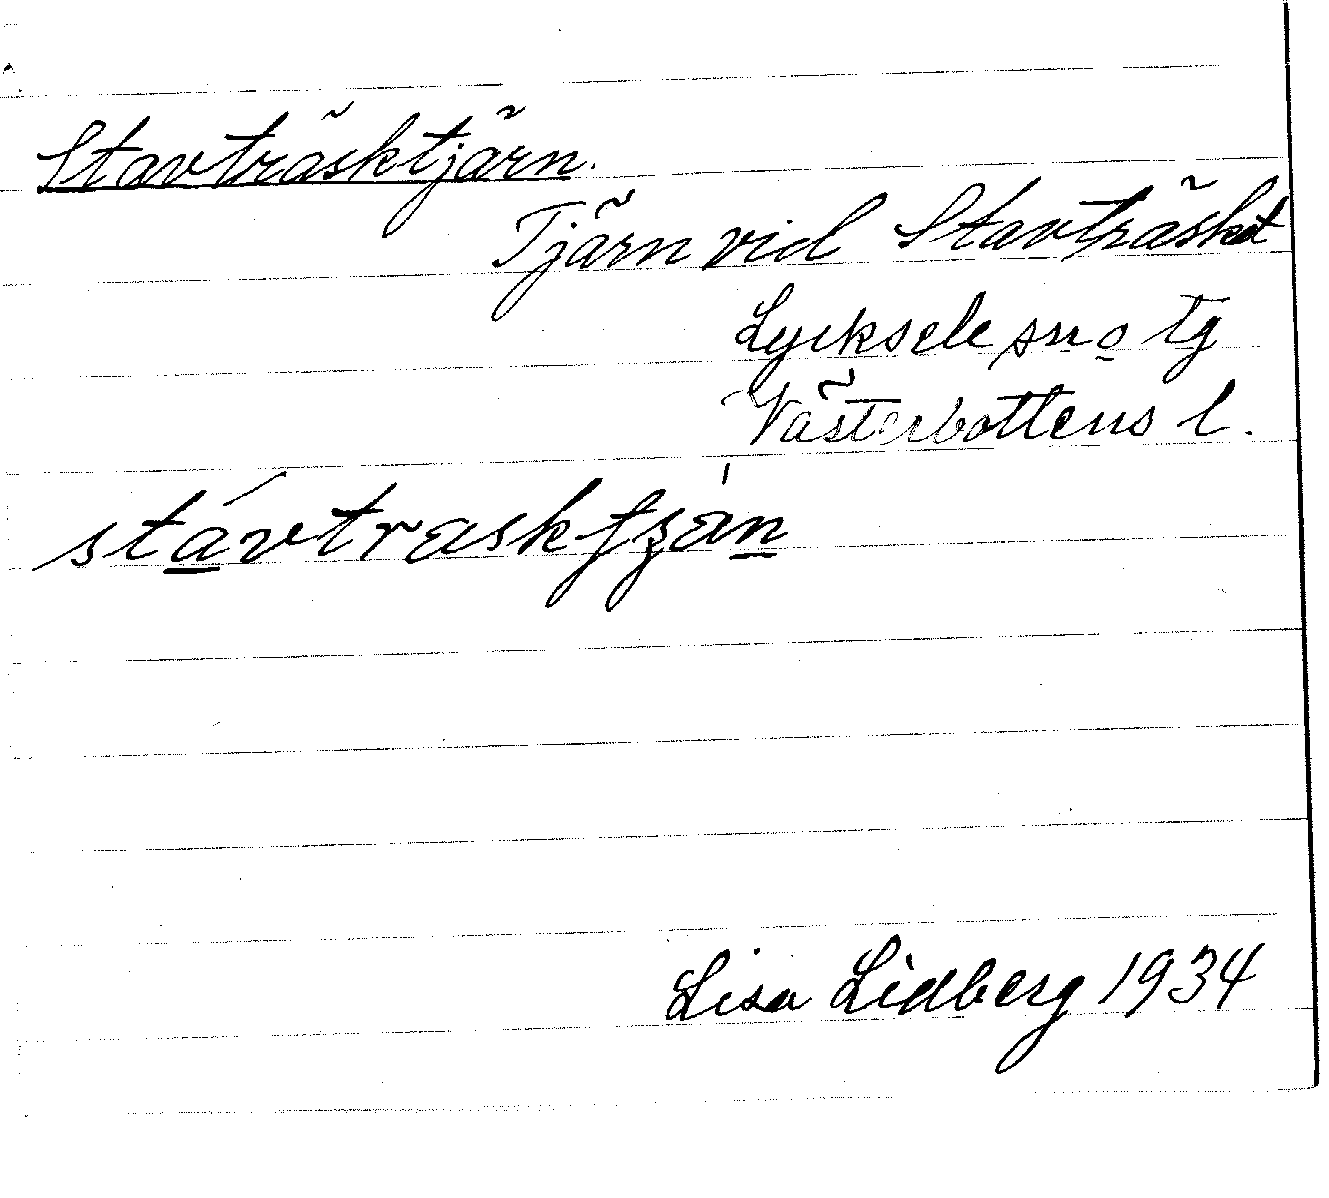 Stavträsktjärn.
Tjärn vid Stavträsket
Lycksele sn o tg
Västerbottens l.
Lisa Lidberg 1934